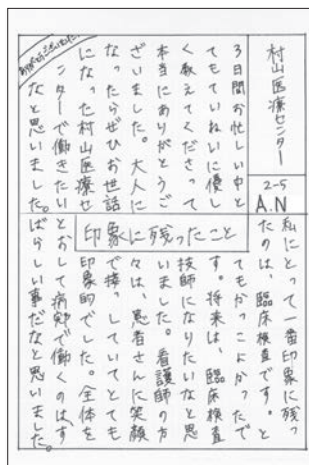 村山医療センター
2-5
A.N
3日間お忙しい中と
てもていねいに優し
く教えてくださって
本当にありがとうご
ざいました。大人に
なったらぜひお世話
になった村山医療セ
ンターで働きたい
なと思いました。
ありがとうございました
印象に残ったこと
私にとって一番印象に残っ
たのは、臨床検査です。と
てもかっこよかったで
す。将来は、臨床検査
技師になりたいなと思
いました。看護師の方
々は、患者さんに笑顔
で接っしていてとても
印象的でした。全体を
とおして病院で働くのは、す
ばらしい事だなと思いました。